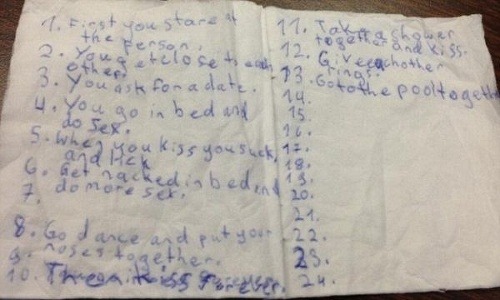 1. First you stare at
the person.
2. You get close to each
other.
3. You ask for a date.
4. You go in bed and
do sex.
5. When you kiss you suck
and lick
6. Get nacked in bed and
7. do more sex.
8. Go dance and put your
9. noses together.
10. Then kiss
11. Take a shower
together and kiss.
12. Give each other
13. rings.
Go to the pool together
14.
15.
16.
17.
18.
19.
20.
21.
22.
23.
24.